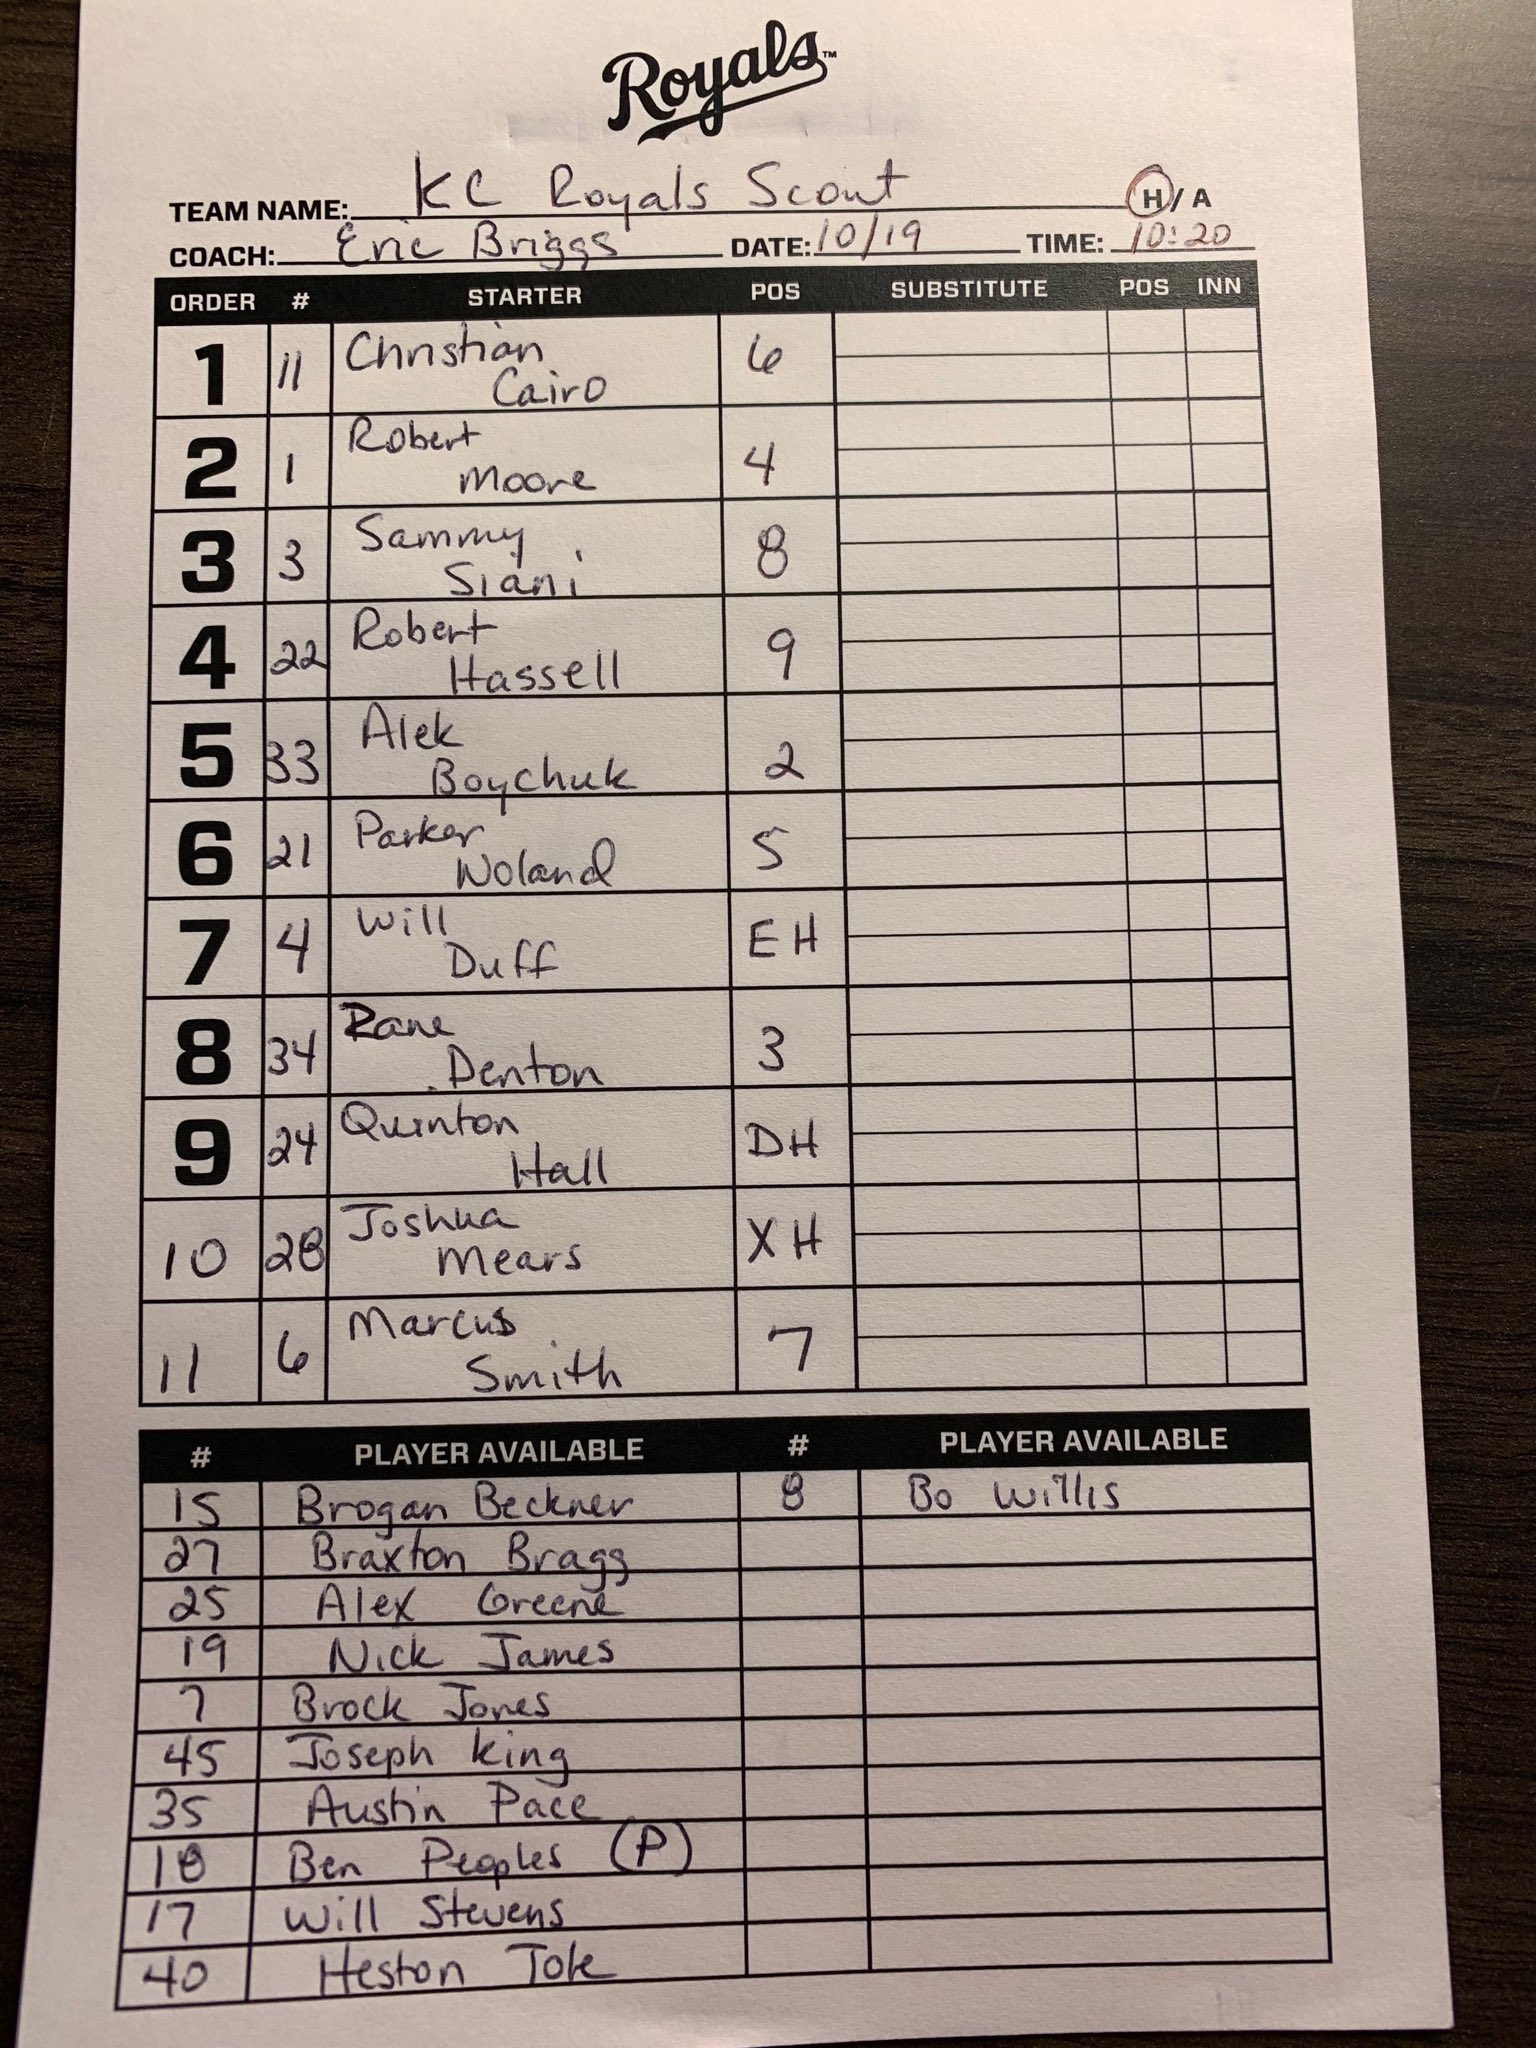 Royals™
TEAM NAME: KC Royals Scout H / A
COACH: Eric Briggs DATE: 10/19 TIME: 10:20
ORDER # STARTER POS SUBSTITUTE POS INN
1 11 Christian Cairo 6
2 1 Robert Moore 4
3 3 Sammy Siani 8
4 22 Robert Hassell 9
5 33 Alek Boychuk 2
6 21 Parker Noland 5
7 4 Will Duff EH
8 34 Zane Denton 3
9 24 Quinton Hall DH
10 28 Joshua Mears XH
11 6 Marcus Smith 7
# PLAYER AVAILABLE # PLAYER AVAILABLE
15 Brogan Beckner 8 Bo Willis
27 Braxton Bragg
25 Alex Greene
19 Nick James
7 Brock Jones
45 Joseph King
35 Austin Pace
18 Ben Peoples (P)
17 Will Stevens
40 Heston Tole